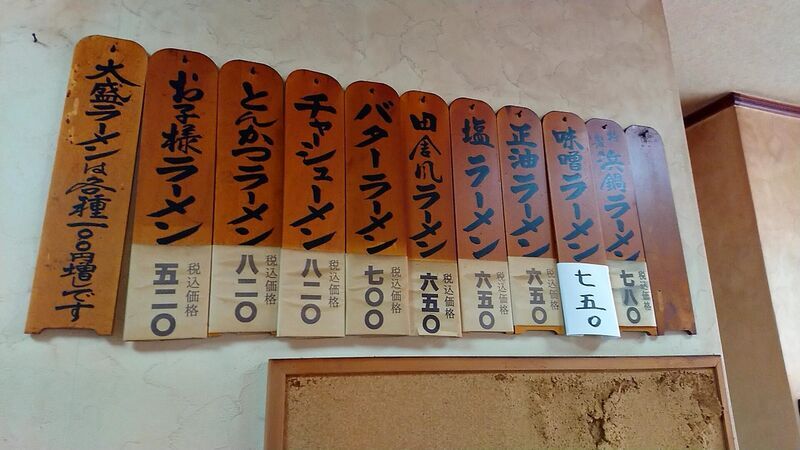 浜鍋ラーメン
税込価格
七八〇
味噌ラーメン
七五〇
正油ラーメン
税込価格
六五〇
塩ラーメン
税込価格
六五〇
田舎風ラーメン
税込価格
六五〇
バターラーメン
税込価格
七〇〇
チャーシューメン
税込価格
八二〇
とんかつラーメン
税込価格
八二〇
お子様ラーメン
税込価格
五二〇
大盛ラーメンは各種一〇〇円増しです